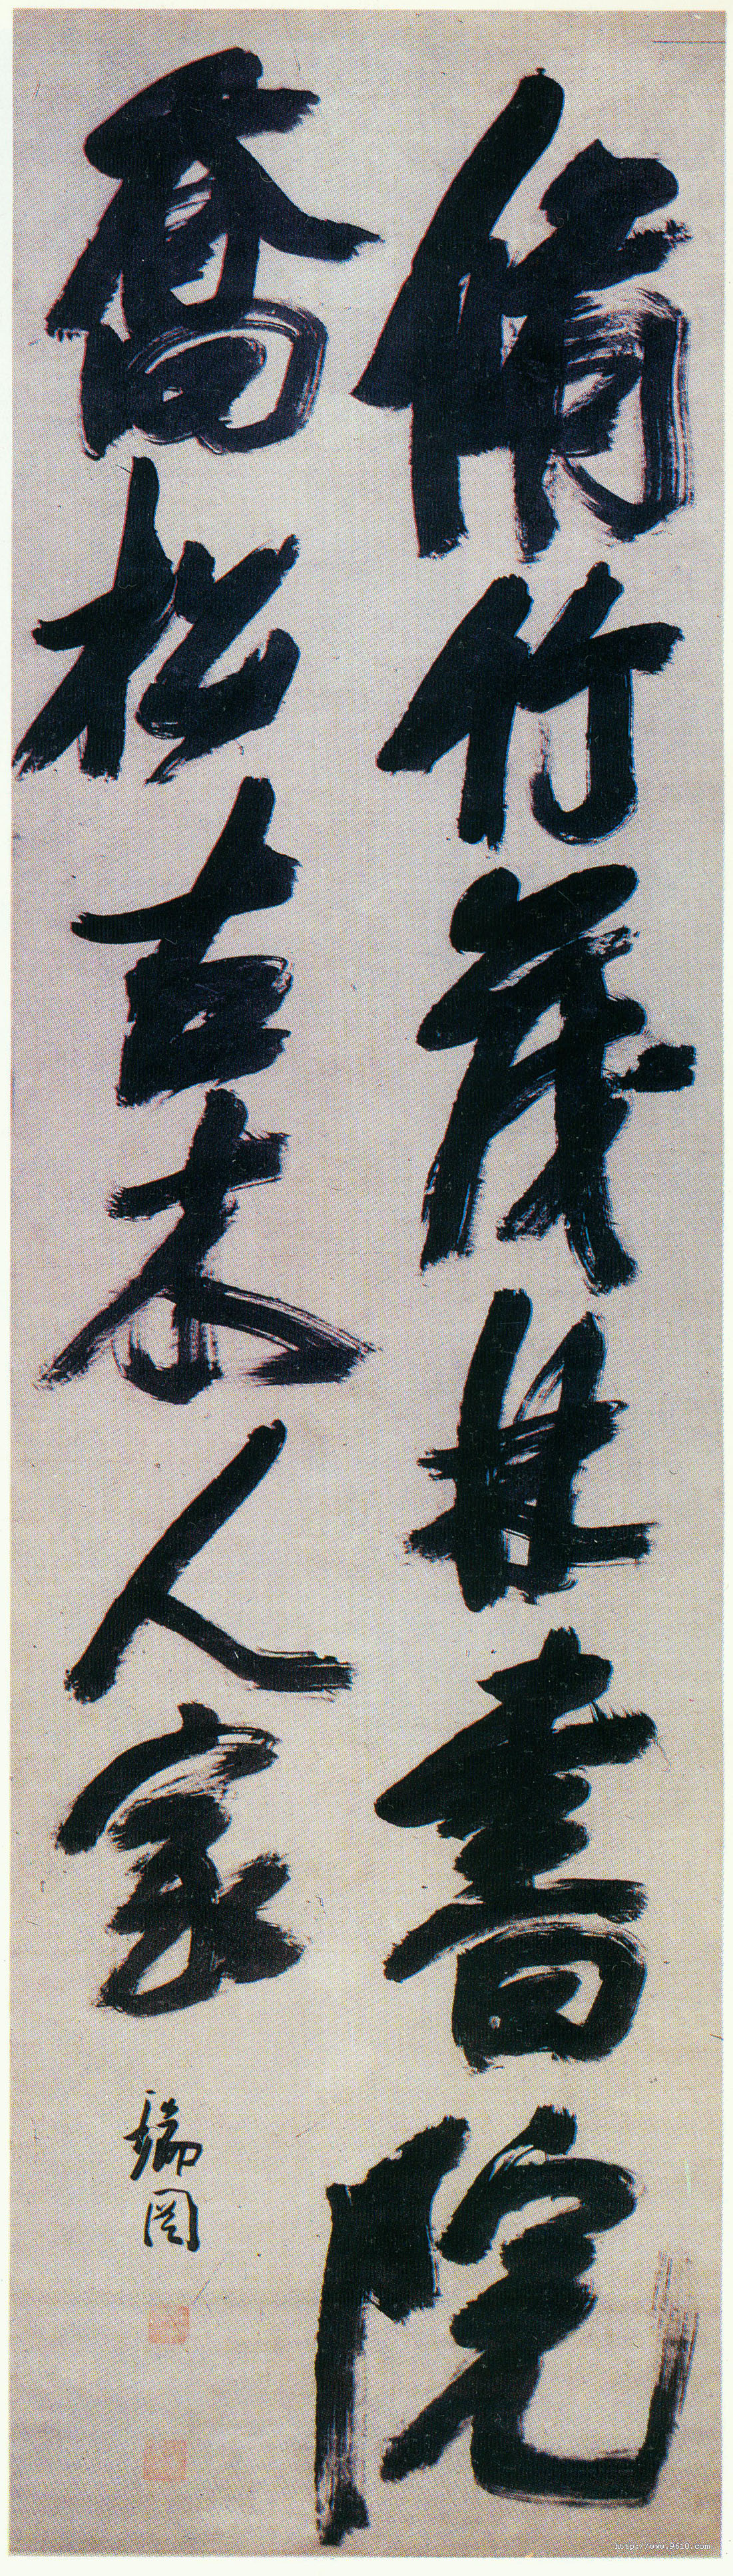 脩竹茂林書院
喬松古木人家
瑞图
http://www.9610.com